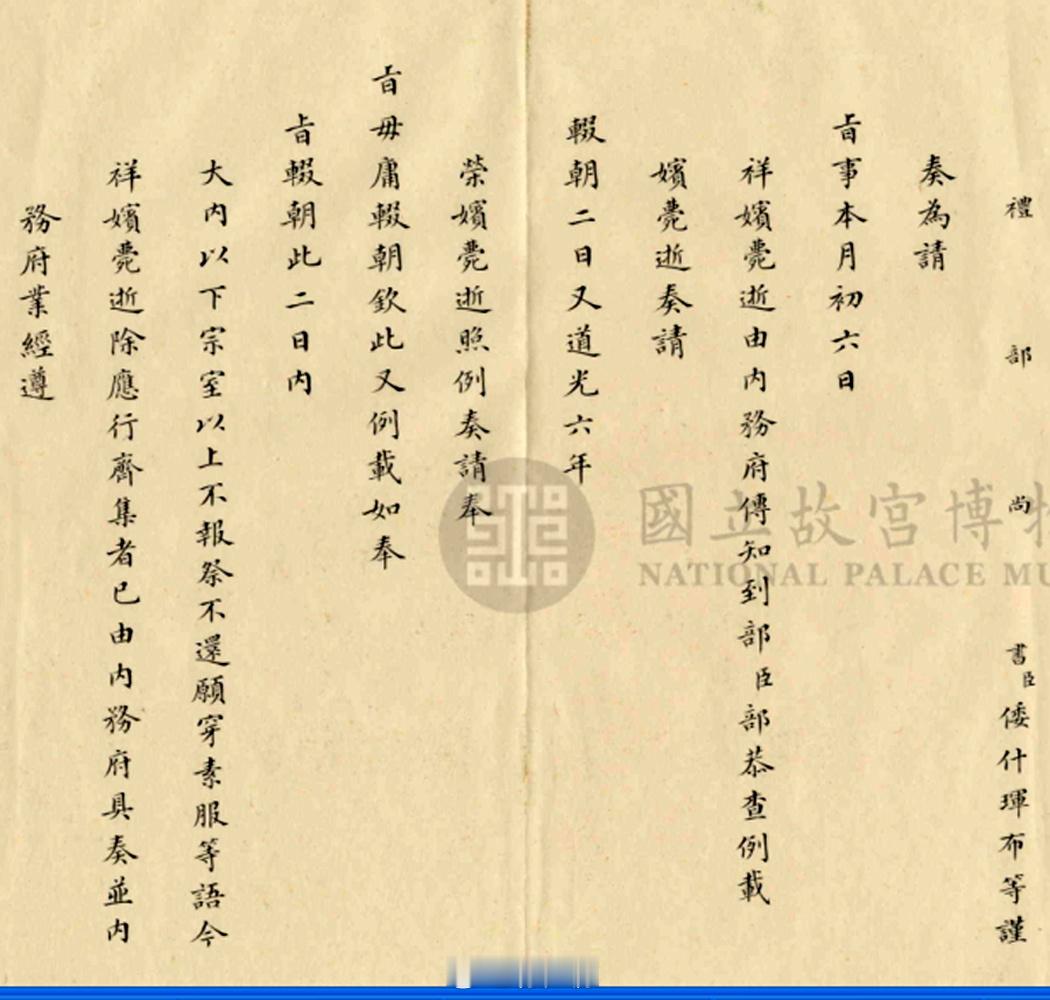 禮部尚書臣倭什琿布等謹
奏為請
旨事本月初六日
祥嬪薨逝由內務府傳知到部臣部恭查例載
嬪薨逝奏請
輟朝二日又道光六年
榮嬪薨逝照例奏請奉
旨毋庸輟朝欽此又例載如奉
旨輟朝此二日內
大內以下宗室以上不報祭不還願穿素服等語今
祥嬪薨逝除應行齊集者已由內務府具奏並內
務府業經遵
國立故宮博物
NATIONAL PALACE MU